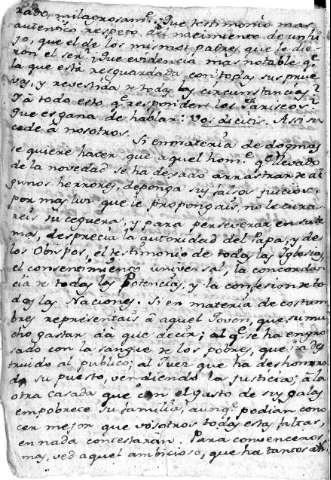 rado milagrosam.te? Que testimonio mas
autentico respeto del nacimiento de un hi
jo, que el de los mismos padres, que le die
ron el ser? Que evidencia mas notable q.e
la que està resguardada con todas sus prue
vas, y revestida de todas las circunstancias?
Y à todo esto q.e responden los Fariseos?
Que es gana de hablar: Vos dicitis. Asi su
cede à nosotros.
Si en materia de dogmas
se quiere hacer que aquel hom.e q.e llevado
de la novedad se ha dexado arrastrar de al
gunos herrores, deponga sus falsos juicios:
por mas luz que le propongais, no le cura
reis su ceguera, y para perseverar en su te
ma, desprecia la autoridad del Papa, y de
los Obispos, el testimonio de todas las Iglesias,
el consentimiento universal, la concordan
cia de todas las potencias, y la confesion de to
das las Naciones. Si en materia de costum
bres representais à aquel Joven, que su mu
cho gastar dà que decir; al q.e se ha engro
sado con la sangre de los pobres, que ha des
truido al publico; al Juez que ha deshonra
do su puesto, vendiendo la justicia; à la
otra casada que con el gasto de sus galas
empobrece su familia, aunq.e podian cono
cer mejor que vosotros todas estas faltas,
en nada contestaràn. Para convenceros
mas, ved aquel ambicioso, que ha tantos